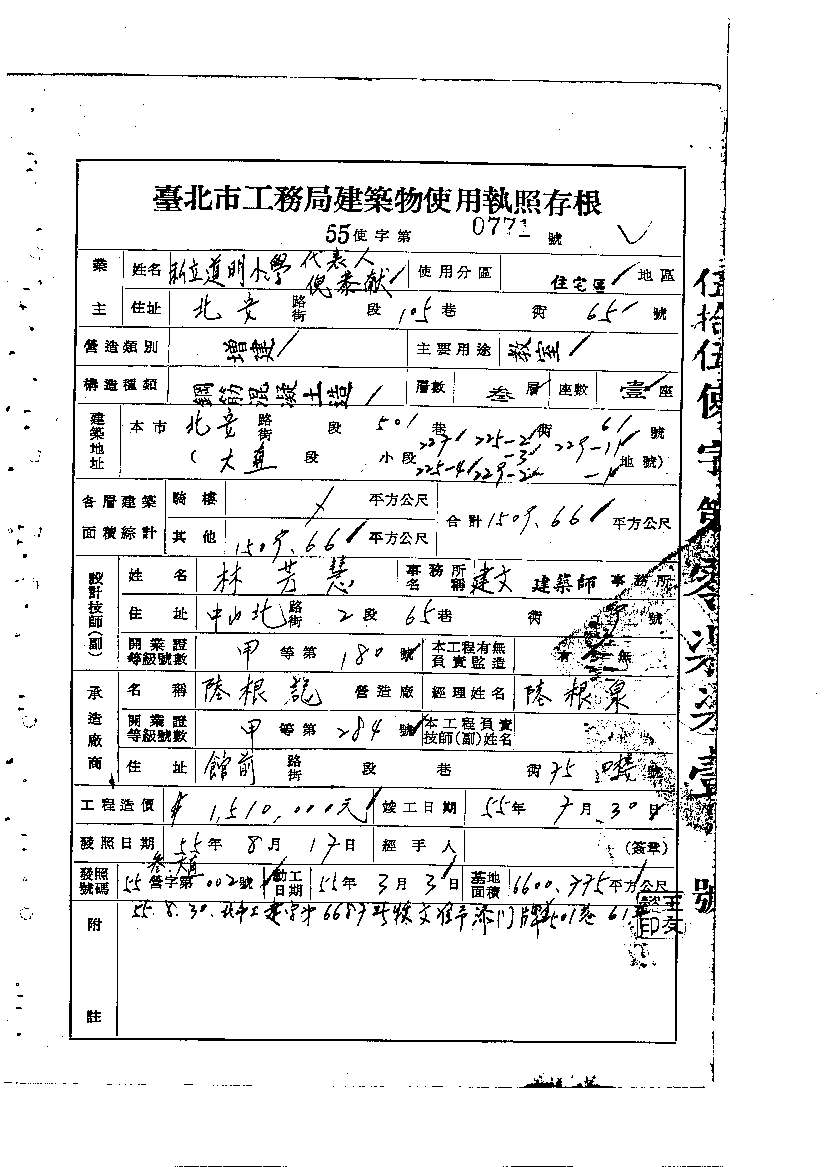 臺北市工務局建築物使用執照存根
55使字第 0771 號
業主 姓名 私立道明小學 代表人 倪泰獻 使用分區 住宅區 地區
住址 北安 路街 段 105巷 街 65 號
營造類別 增建 主要用途 教室
構造種類 鋼筋混凝土造 層數 叁層 座數 壹座
建築地址 本市 北安 路街 段 501巷 街 61 號
(大直 段 小段 227 225-2 -3 229-11 225-4 229-2 地號)
各層建築面積綜計 騎樓 平方公尺 合計1509.66平方公尺
其他 1509.66平方公尺
設計技師(副) 姓名 林芳慧 事務所名稱 建文 建築師事務所
住址 中山北 路街 2段 65巷 街 號
開業證等級號數 甲等第180號 本工程有無負責監造 無
承造廠商 名稱 陸根記 營造廠 經理姓名 陸根泉
開業證等級號數 甲等第284號 本工程負責技師(副)姓名
住址 館前 路街 段 巷 街 75 號
工程造價 1,510,000元 竣工日期 55年7月30日
發照日期 55年8月17日 經手人 (簽章)
發照號碼 55營字第002號 動工日期 55年3月3日 基地面積 6600.775平方公尺
附註 55.8.30.北市工建字第6687號
伍拾伍使字第零柒柒壹號